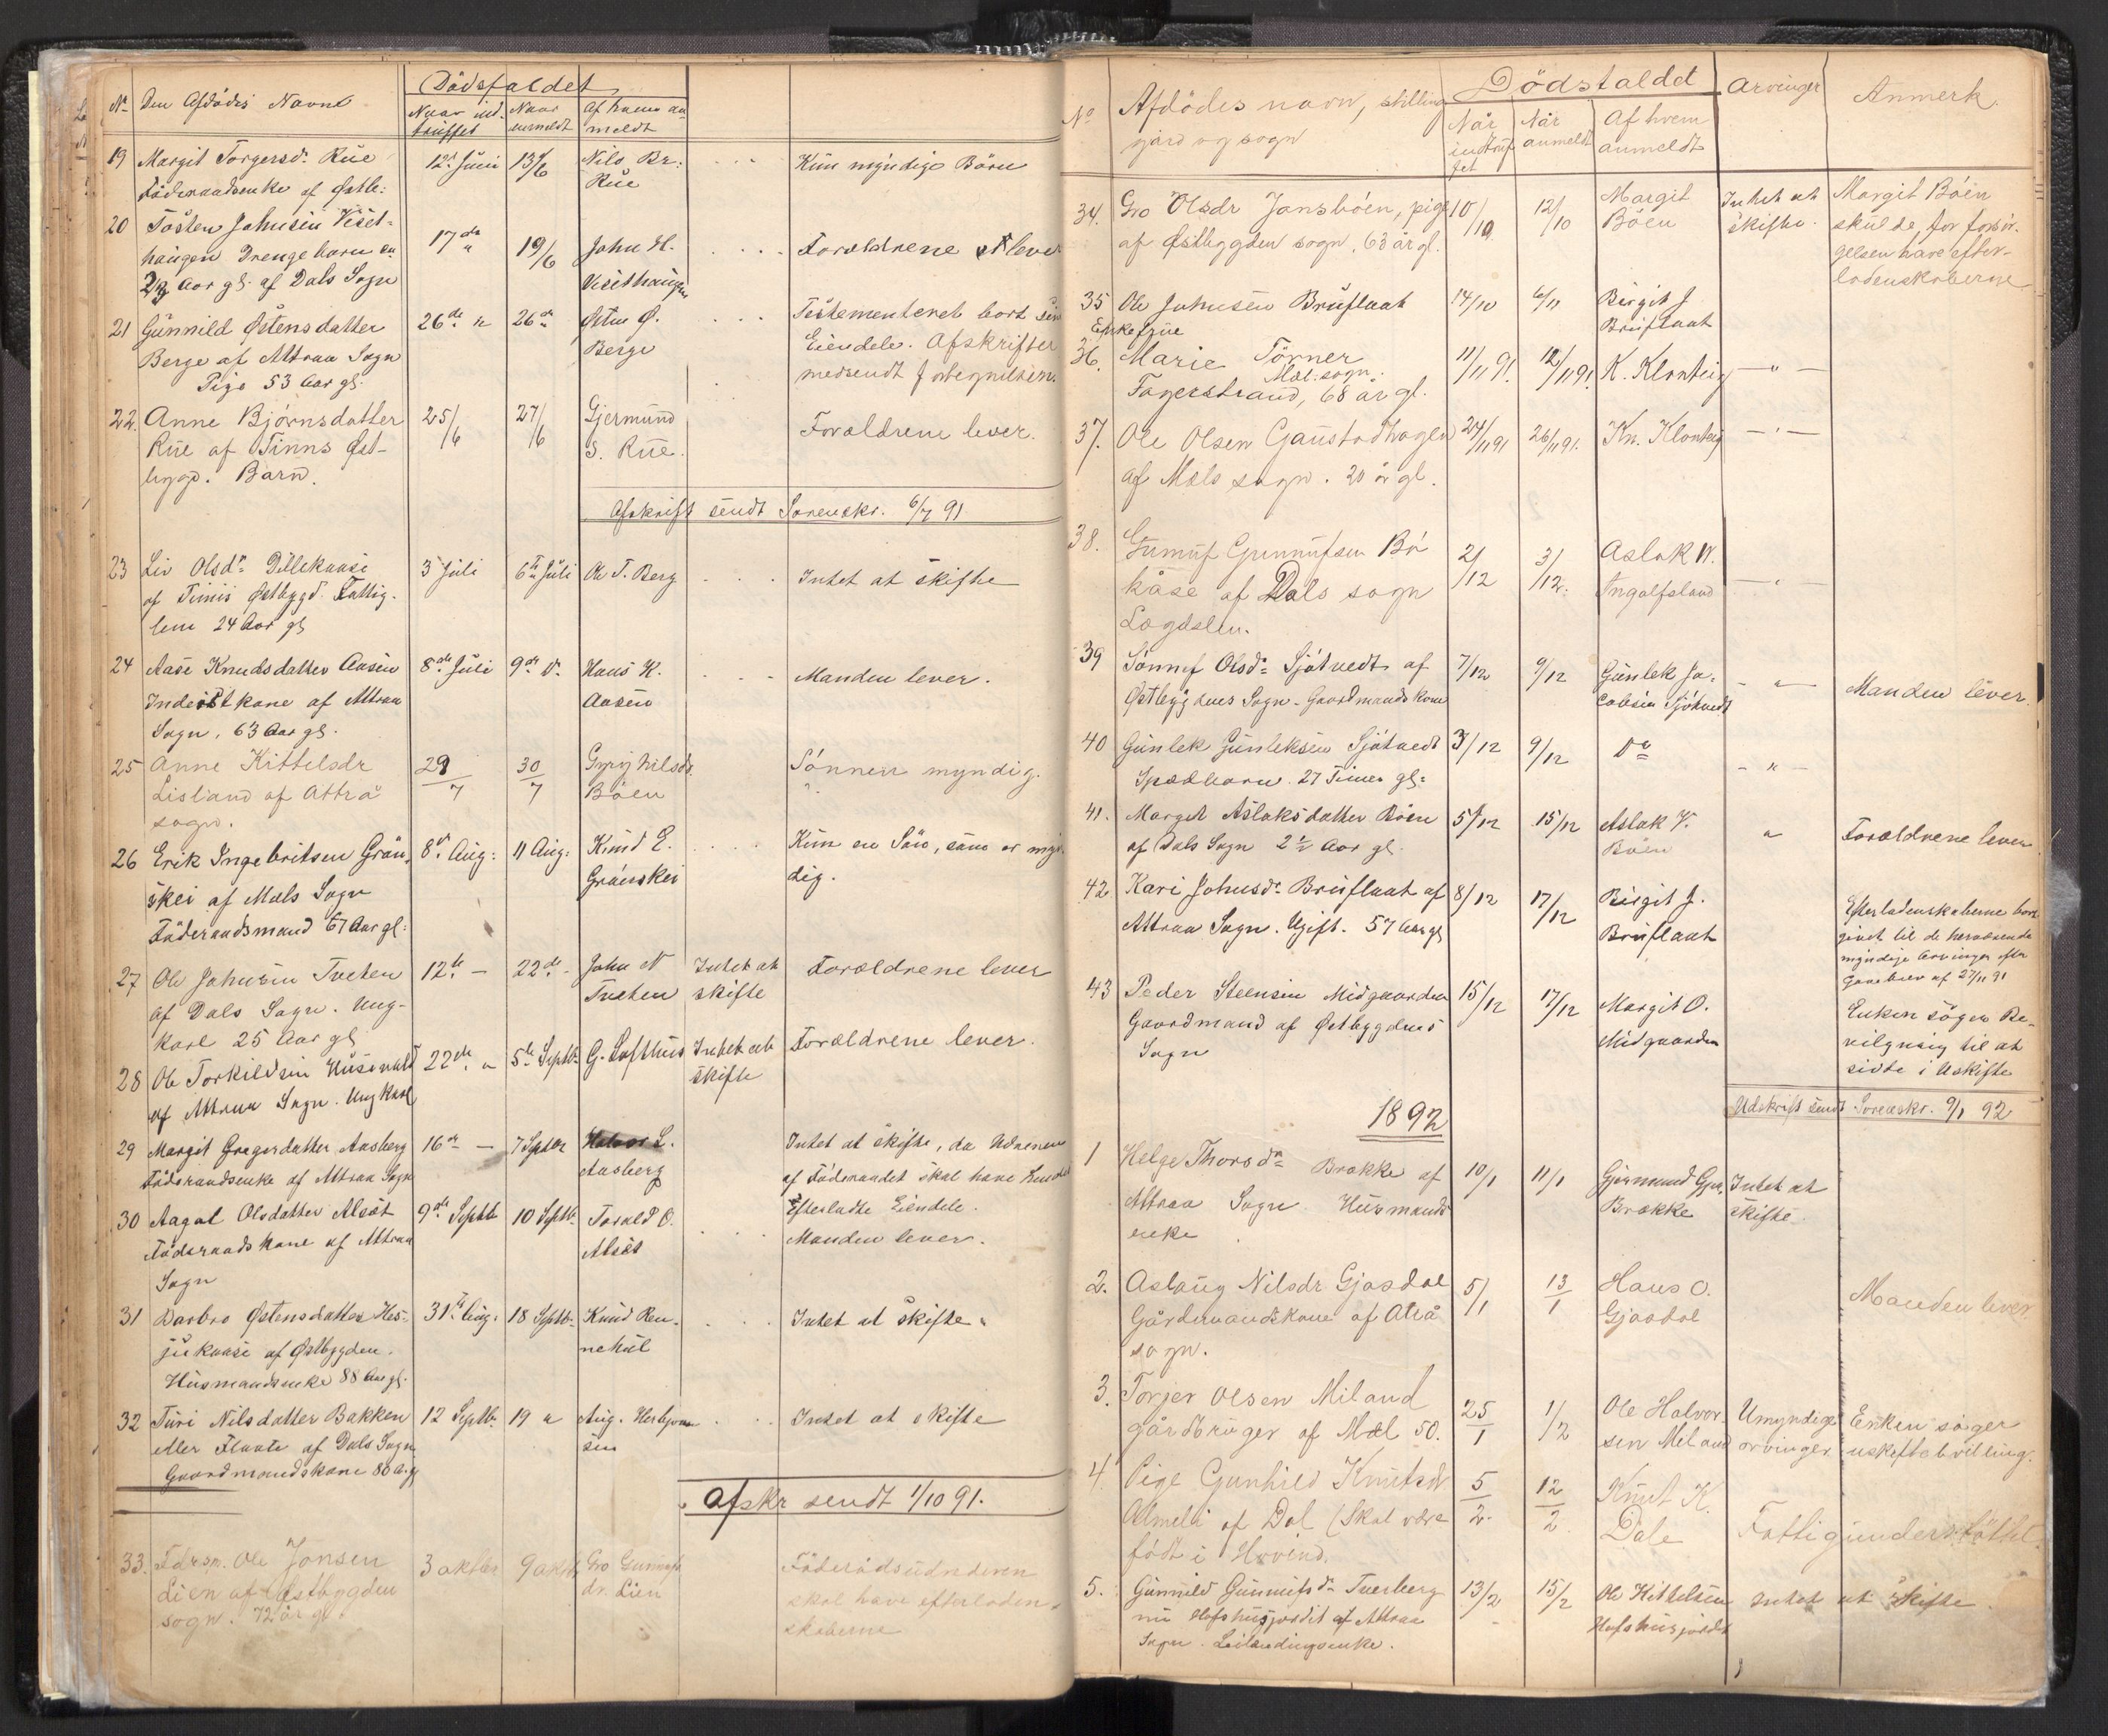 Nº Den Afdödes Navn
Dödsfaldet
Naar ind-
truffet
Naar
anmeldt
Af hvem an
meldt
19 Margit Torgersdr Rue
Föderaadsenke af Østb:
12te Juni 13/6 Nils Br:
Rue
Kun myndige Börn
20 Tosten Johnsen Viset-
haugen Drengebarn
2½ Aar gl. af Dals Sogn
17de " 19/6 John H.
Visethaugen
Forældrene lever
21 Gunnild Østensdatter
Berge af Attraa Sogn
Pige 53 Aar gl.
26de " 26de Østen Ø.
Berge
Testementeret bort sine
Eiendele. Afskrifter
medsendt
22. Anne Bjørnsdatter
Rue af Tinns Øst-
bygd. Barn.
25/6 27/6 Gjermund
S. Rue.
Forældrene lever.
Afskrift sendt Sorenskr. 6/7 91
23 Liv Olsdr Dillekaasi
af Tinns Østbygd. Fattig-
lem 24 Aar gl
3 Juli 6te Juli Ole T. Berg
Intet at skifte
24 Aase Knudsdatter Aasen
Inderstkone af Attraa
Sogn, 63 Aar gl.
8de Juli 9de Do Hans K.
Aasen
Manden lever.
25 Anne Kittelsdr
Lisland af Attrå
sogn.
29/7 30/7 Gyrij Nilsdr.
Böen
Sönnen myndig.
26 Erik Ingebritsen Grön-
skei af Mæls Sogn
Föderaadsmand 67 Aar gl.
8de Aug: 11 Aug: Knud E.
Grönskei
Kun en Sön, som er myn-
dig.
27 Ole Johnsen Tveten
af Dals Sogn. Ung-
karl 25 Aar gl
12te — 22de - John N
Tveten
Intet at
skifte
Forældrene lever
28 Ole Torkildsen Husevold
af Attraa Sogn. Ungkarl
22de " 5te Septb. G. Lofthus
Intet at
skifte
Forældrene lever.
29 Margit Gregersdatter Aasberg
Föderaadsenke af Attraa Sogn
16de — 7 Septbr Halvor L.
Aasberg
Intet at skifte, da Udrederen
af Föderaadet skal have hendes
Efterladte Eiendele.
30 Aagot Olsdatter Alsöt
Föderaadskone af Attraa
Sogn
9de Septb 10 Septb. Torald O.
Alsöt
Manden lever.
31 Barbro Østensdatter Hes-
jukaasi af Østbygden.
Husmandsenke 88 Aar gl.
31te Aug. 18 Septb. Knud Ren-
nehul
Intet at skifte.
32 Turi Nilsdatter Bakken
eller Flaata af Dals Sogn
Gaardmandskone 80 A. gl
12 Septb. 19 " Aug. Herbjörn-
sen
Intet at skifte
Afskr sendt 1/10 91.
33. Födrsm. Ole Jonsen
Lien af Østbygden
sogn. 72 år gl.
3 oktbr 9 oktb Gro Gunnufs
dr. Lien
Föderådsudrederen
skal have efterladen-
skaberne
Nº Afdödes navn, stilling
gård og sogn
Dödsfaldet
Når
indtruf
fet
Når
anmeldt
Af hvem
anmeldt
Arvinger
Anmerk.
34. Gro Olsdr Jonsböen, pige
af Østbygden sogn, 63 år gl.
10/10 12/10 Margit
Böen
Intet at
skifte.
Margit Böen
skulde, for forsör-
gelsen have efter-
ladenskaberne
35 Ole Johnsen Bruflaat
14/10 6/11 Birgit J
Bruflaat
Enkefrue
36. Marie Törner
Mæl sogn.
Fagerstrand, 68 år gl.
11/11 91. 12/11 91. K. Klonteig — " —
37. Ole Olsen Gaustadhagen
af Mæls sogn. 20 år gl.
24/11 91 26/11 91. Kn. Klonteig — " —
38. Gunuf Gunnufsen Bö
kåse af Dals sogn
Lægdslem.
2/12 3/12. Aslak N.
Ingolfsland — " —
39 Sönnef Olsdr Sjötvedt af
Østbygdens Sogn - Gaardmandskone
7/12 9/12 Gunlek Ja-
cobsen Sjötvedt — " — Manden lever.
40 Gunlek Gunleksen Sjötvedt
Spædbarn 27 Timer gl.
3/12 9/12 Do — " —
41. Margit Aslaksdatter Böen
af Dals Sogn 2½ Aar gl.
5/12 15/12 Aslak V.
Böen " Forældrene lever
42. Kari Johnsdr Bruflaat af
Attraa Sogn. Ugift. 57 Aar gl
8/12 17/12 Birgit J.
Bruflaat
Efterladenskaberne bort
givet til de herværende
myndige Arvinger efter
Gavebrev af 27/11 91
43 Peder Steensen Midgaarden
Gaardmand af Østbygdens
Sogn
15/12 17/12 Margit O.
Midgaarden
Enken söger Be-
vilgning til at
sidde i Uskifte
Udskrift sendt Sorenskr. 9/1 92
1892
1 Helge Thorsdr Brække af
Attraa Sogn Husmands
enke
10/1 11/1 Gjermund Gjer.
Brække
Intet at
skifte.
2. Aslaug Nilsdr Gjøsdal
Gårdmandskone af Atrå
sogn.
5/1 13/1 Hans O.
Gjøsdal
Manden lever.
3. Torjer Olsen Miland
gårdbruger af Mæl 50.
25/1 1/2 Ole Halvor-
sen Miland
Umyndige
arvinger
Enken söger
uskiftebevilling.
4. Pige Gunhild Knutsdr
Almeli af Dal (Skal være
födt i Hovind.
5/2. 12/2 Knut K.
Dale
Fattigunderstöttet.
5. Gunnild Gunnufsdr Tverberg
nu Hofshusjordet af Attraa
Sogn. Leilændingsenke.
13/2 15/2 Ole Kittelsen
Hofshusjordet
Intet at skifte